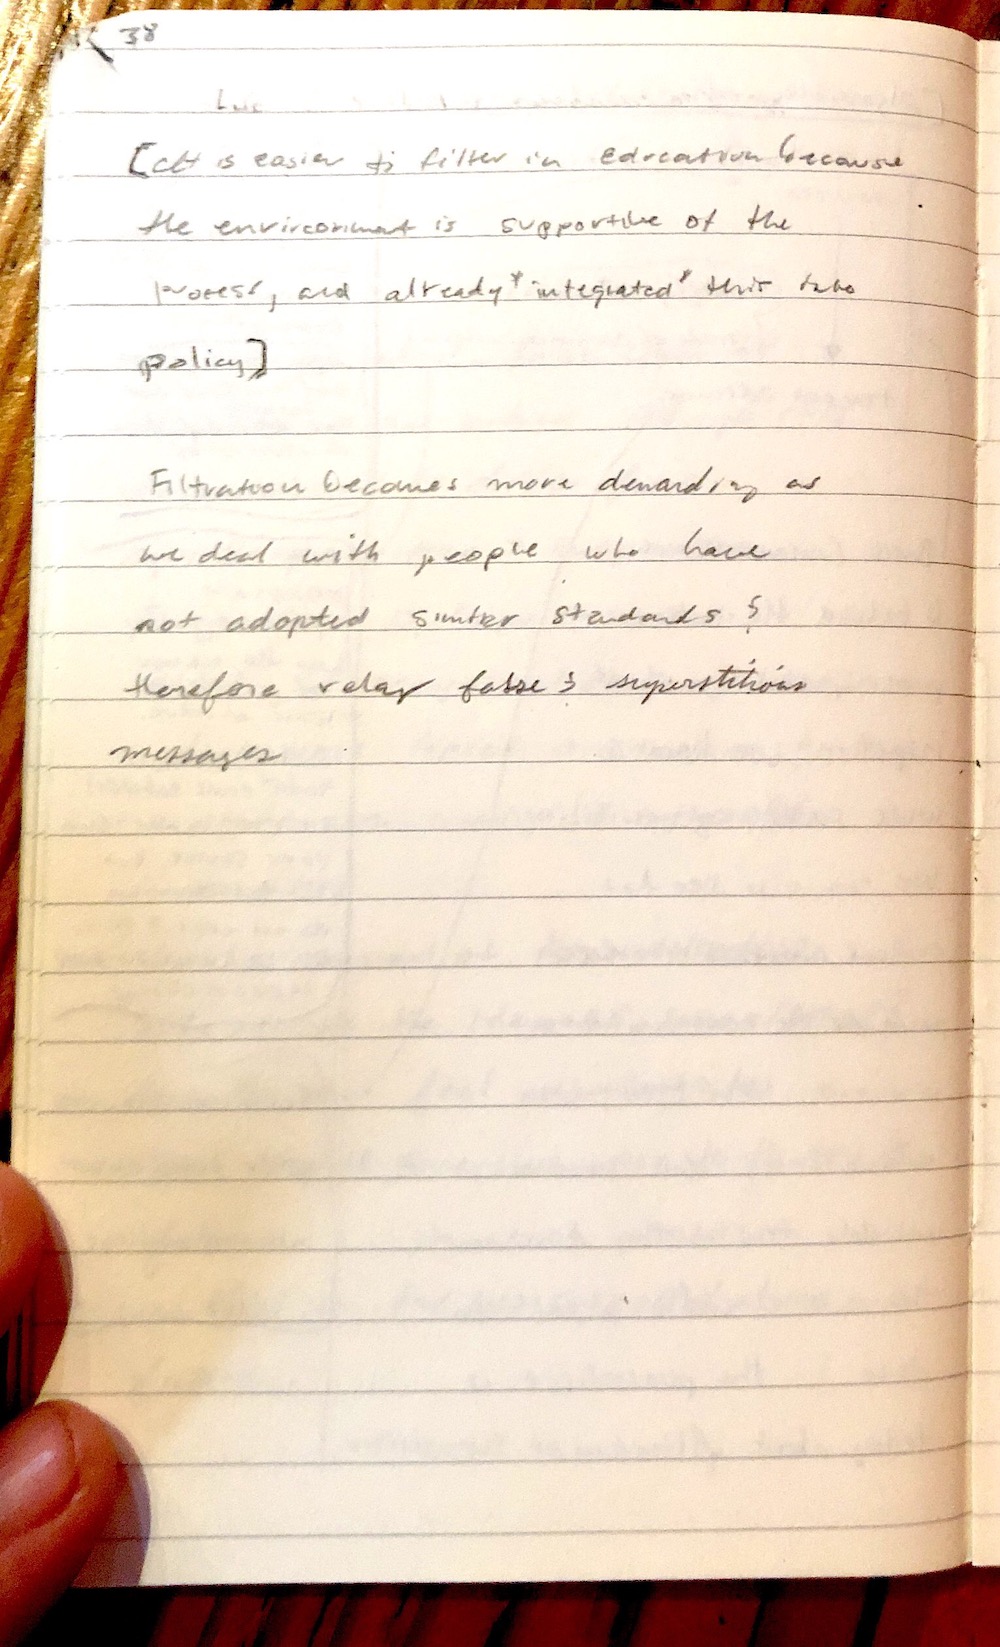 38
[It is easier to filter in education because
the environment is supportive of the
process, and already "integrated" this into
policy]
Filtration becomes more demanding as
we deal with people who have
not adopted similar standards &
therefore relay false & superstitious
messages